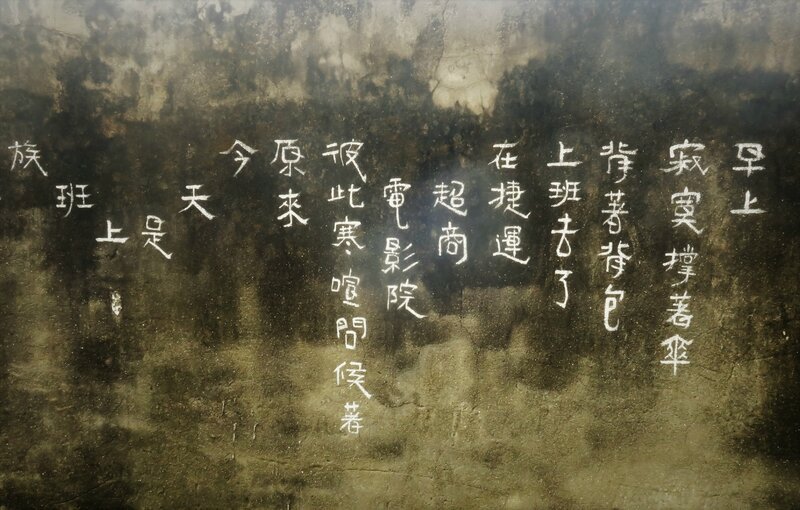 早上
寂寞撐著傘
背著背包
上班去了
在捷運
超商
電影院
彼此寒喧問候著
原來
今
天
是
上
班
族